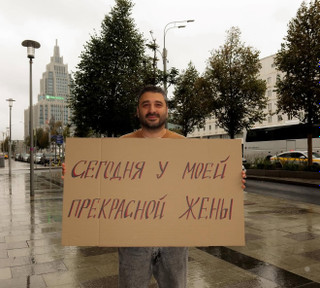 СЕГОДНЯ У МОЕЙ
ПРЕКРАСНОЙ ЖЕНЫ